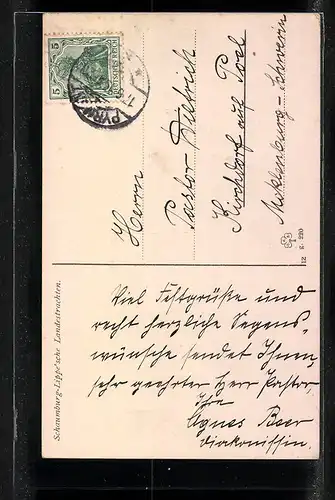 5 5
DEUTSCHES REICH
PYRMONT
Herrn
Pastor Dietrich
Kirchdorf auf Poel
Mecklenburg-Schwerin
12 g. 220
Schaumburg-Lippe'sche Landestrachten.
Viel Festgrüße und
recht herzliche Segens-
wünsche sendet Ihnen,
sehr geehrter Herr Pastor,
Ihre
Agnes Beer
Diakonissin.